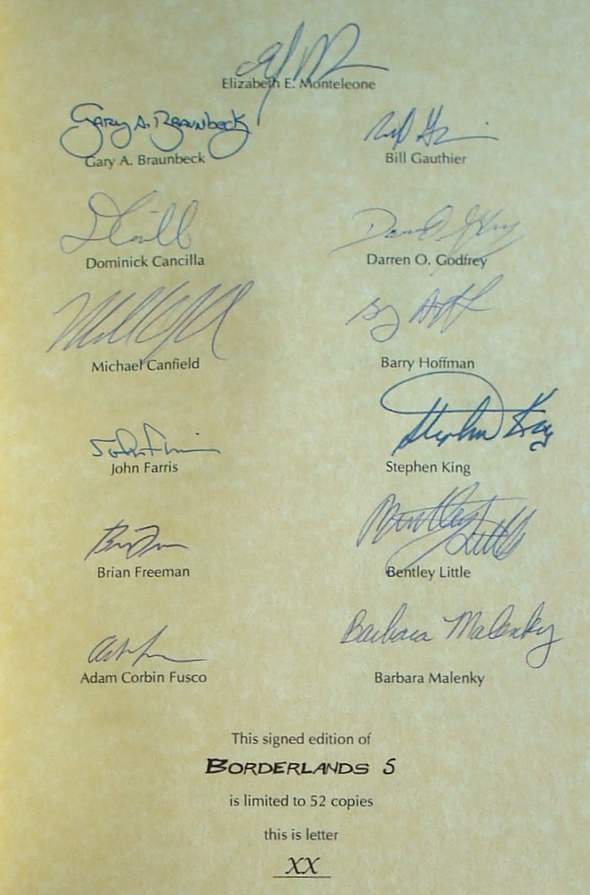 Elizabeth E. Monteleone
Gary A. Braunbeck
Gary A. Braunbeck
Bill Gauthier
Dominick Cancilla
Darren O. Godfrey
Michael Canfield
Barry Hoffman
John Farris
Stephen King
Stephen King
Brian Freeman
Bentley Little
Bentley Little
Adam Corbin Fusco
Barbara Malenky
Barbara Malenky
This signed edition of
BORDERLANDS 5
is limited to 52 copies
this is letter
XX